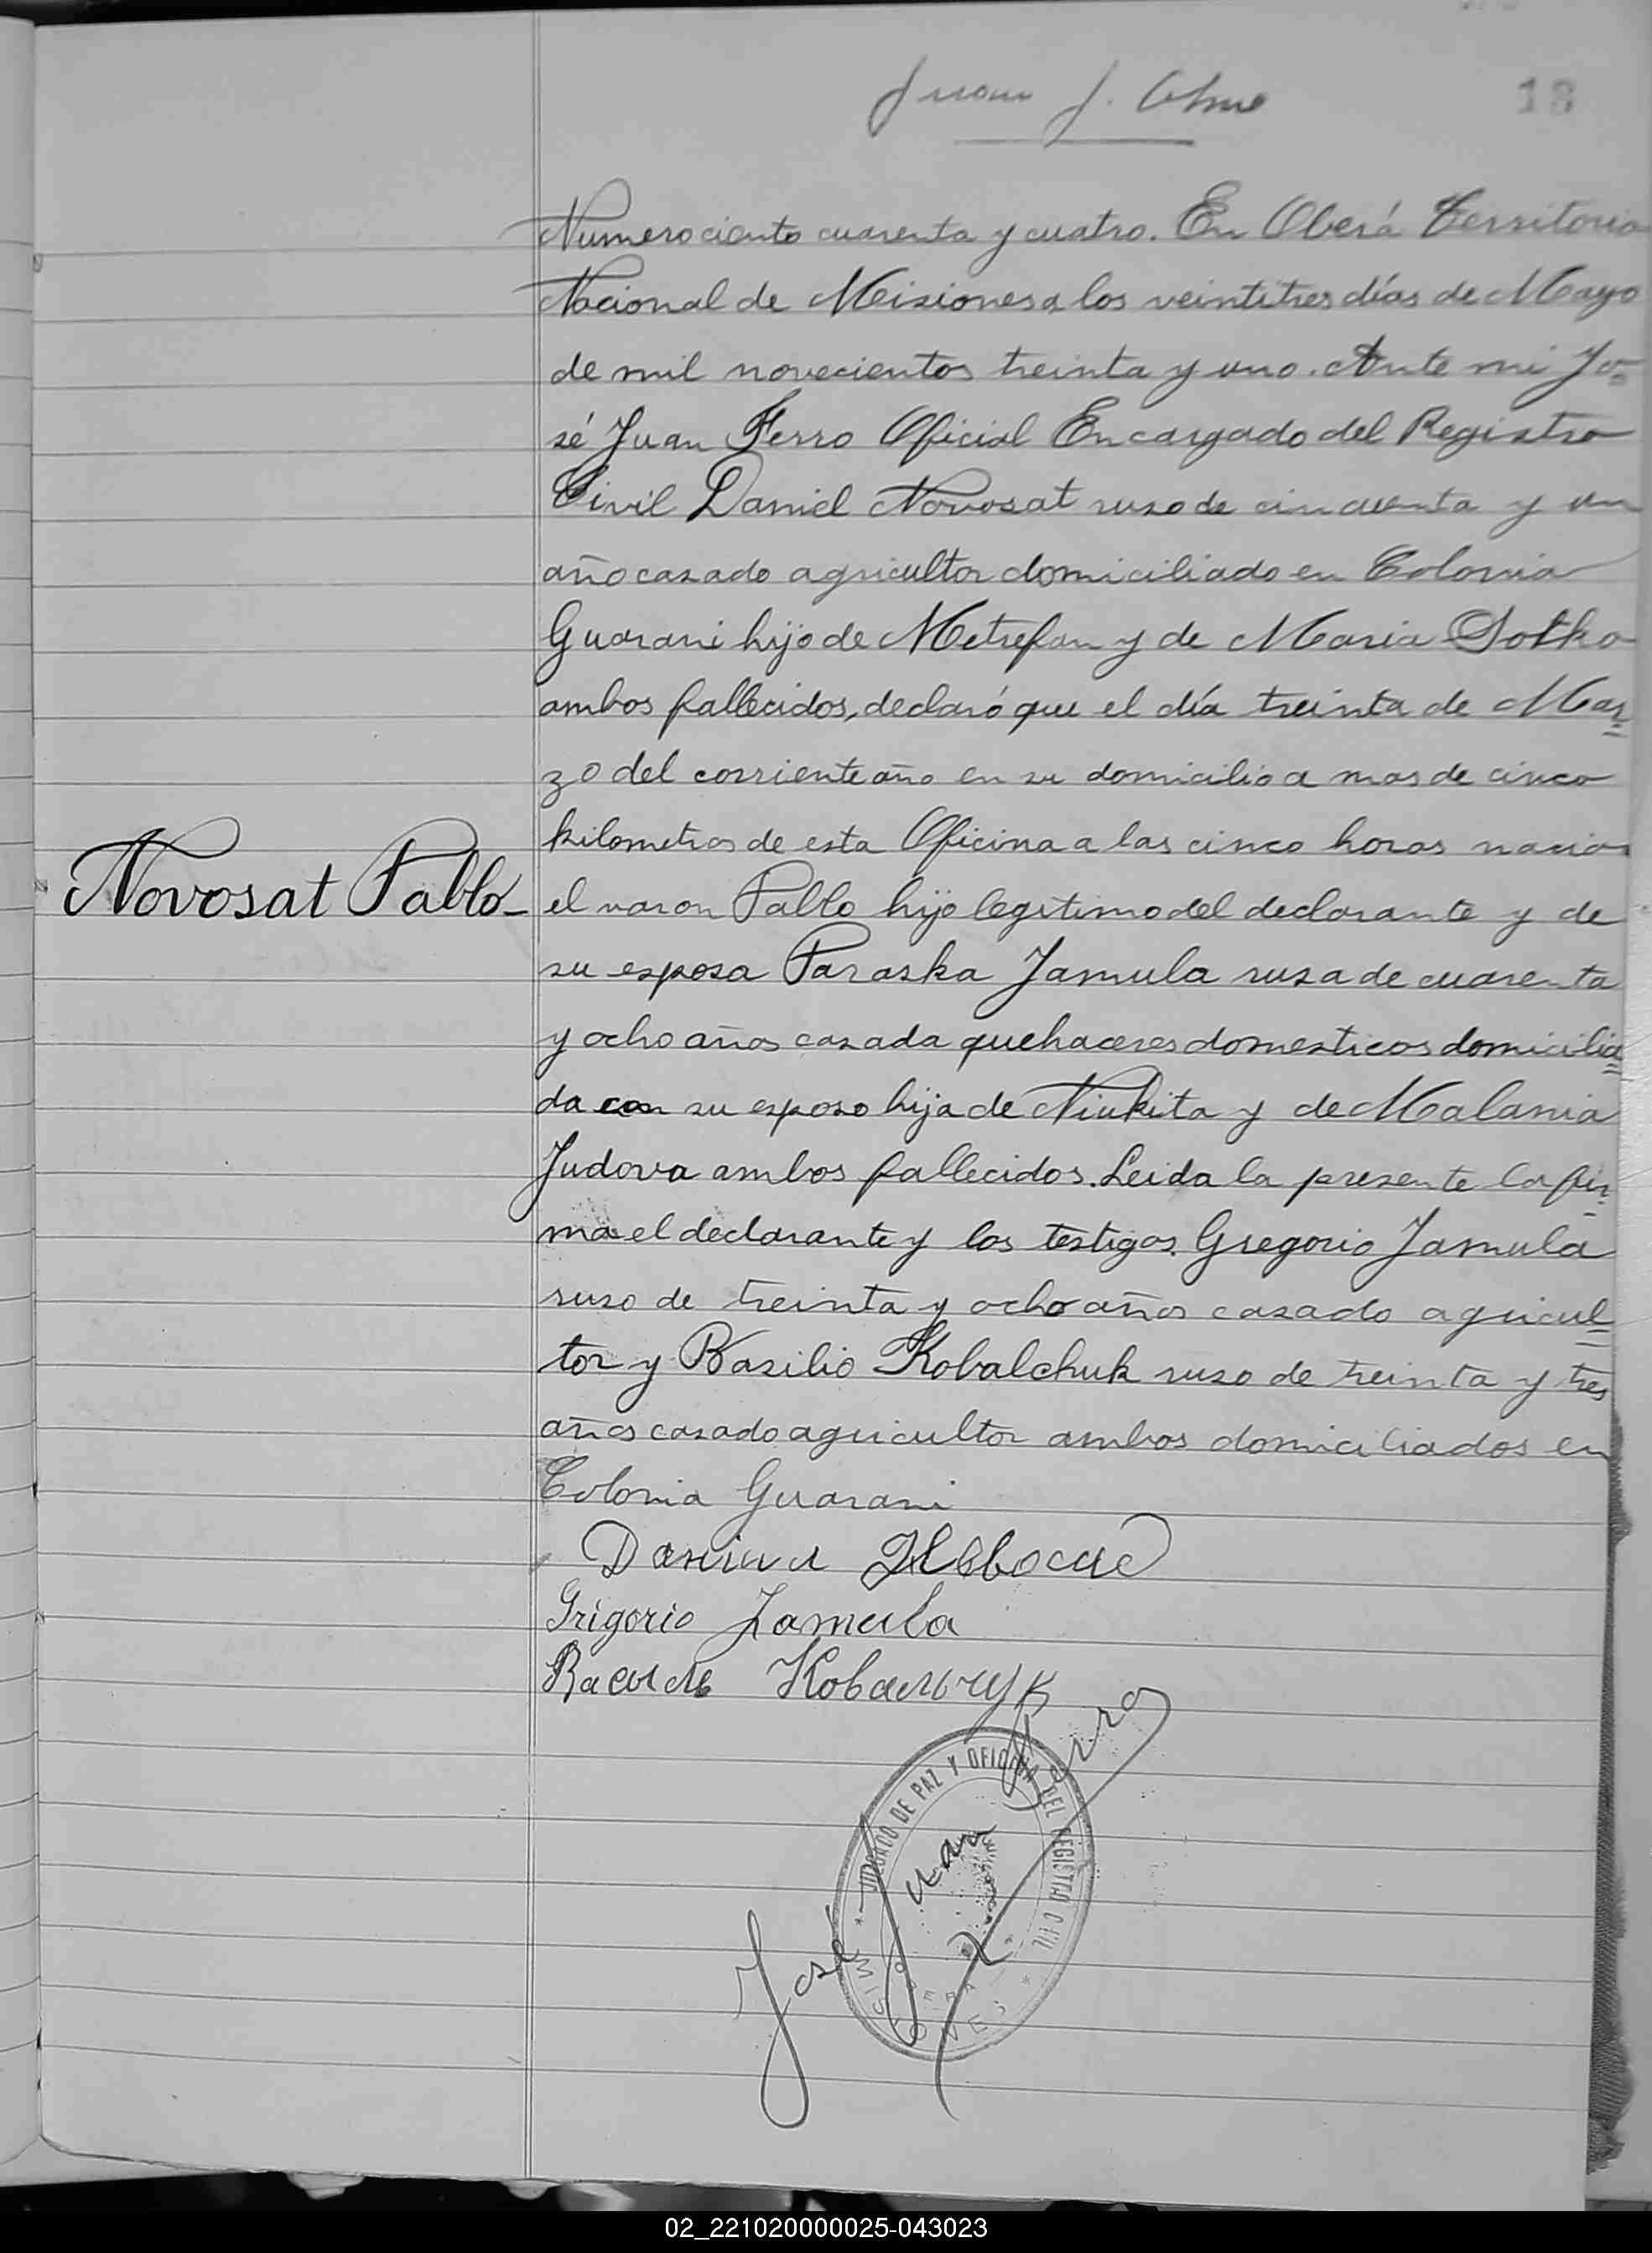 Juan J.
18
Numero ciento cuarenta y cuatro. En Oberá Territorio
Nacional de Misiones a los veintitres días de Mayo
de mil novecientos treinta y uno. Ante mi Jo-
sé Juan Ferro Oficial Encargado del Registro
Civil Daniel Novosat ruso de cincuenta y un
año casado agricultor domiciliado en Colonia
Guarani hijo de Metrefan y de Maria Sotko
ambos fallecidos, declaró que el día treinta de Mar=
zo del corriente año en su domicilio a mas de cinco
kilometros de esta Oficina a las cinco horas nacio
Novosat Pablo- el varon Pablo hijo legitimo del declarante y de
su esposa Paraska Jamula rusa de cuarenta
y ocho años casada quehaceres domesticos domicilia=
da con su esposo hija de Niukita y de Malania
Judova ambos fallecidos. Leida la presente la fir=
ma el declarante y los testigos. Gregorio Jamula
ruso de treinta y ocho años casado agricul=
tor y Basilio Kobalchuk ruso de treinta y tres
años casado agricultor ambos domiciliados en
Colonia Guarani
Grigorio Jamula
Ковальчук
José Juan Ferro
JUZGADO DE PAZ Y OFICINA DEL REGISTRO CIVIL
OBERA
* MISIONES *
02_221020000025-043023